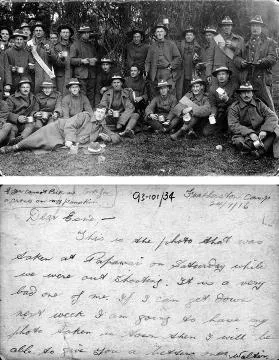 93-101/34
Featherston Camp
20/1/16
Dear Elsie –
This is the photo that was
taken at Papawai on Saturday while
we were out Shooting. It is a very
bad one of me. If I can get down
next week I am going to have my
photo taken in town then I will be
able to give you a better one. Walter